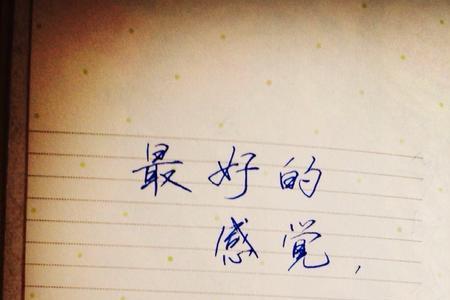 最好的
感觉,